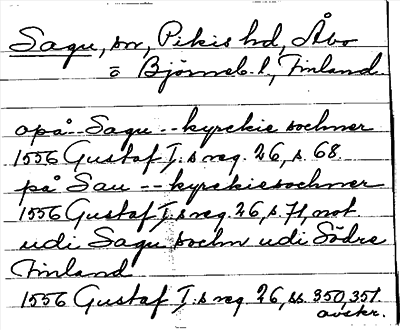 Sagu, sn, Pikis hd, Åbo
o Björneb. l, Finland.
opå Sagu -- kyrckie sochner
1556 Gustaf I:s reg. 26, s. 68.
på Sau -- kyrckiesochner
1556 Gustaf I:s reg. 26, s. 71, not
udi Sagu sochn udi Södre
Finland
1556 Gustaf I:s reg. 26, ss. 350, 351.
avskr.